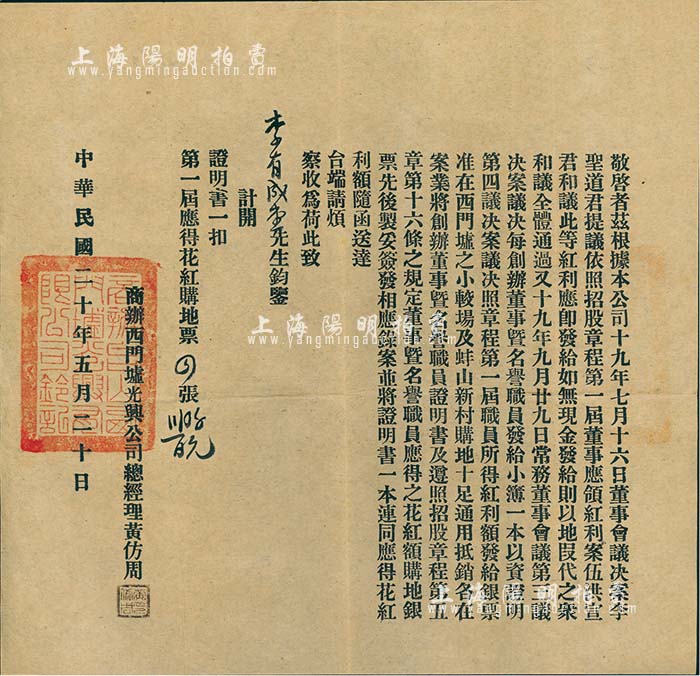 敬啓者茲根據本公司十九年七月十六日董事會議決案李
聖道君提議依照招股章程第一屆董事應領紅利案伍洪宣
君和議此等紅利應卽發給如無現金發給則以地叚代之衆
和議全體通過又十九年九月廿九日常務董事會議第三議
决案議决每創辦董事暨名譽職員發給小簿一本以資證明
第四議决案議决照章程第一屆職員所得紅利額發給銀票
准在西門墟之小較場及蚌山新村購地十足通用抵銷各在
案業將創辦董事暨名譽職員證明書及遵照招股章程第五
章第十六條之規定董事暨名譽職員應得之花紅額購地銀
票先後製妥簽發相應錄案並將證明書一本連同應得花紅
利額隨函送達
台端請煩
察收爲荷此致
李有成 先生鈞鑒
計開
證明書一扣
第一屆應得花紅購地票 張
商辦西門墟光興公司總經理黃仿周
中華民國二十年五月二十日
上海陽明拍賣
www.yangmingauction.com
上海陽明拍賣
www.yangmingauction.com
上海陽明拍賣
www.yangmingauction.com